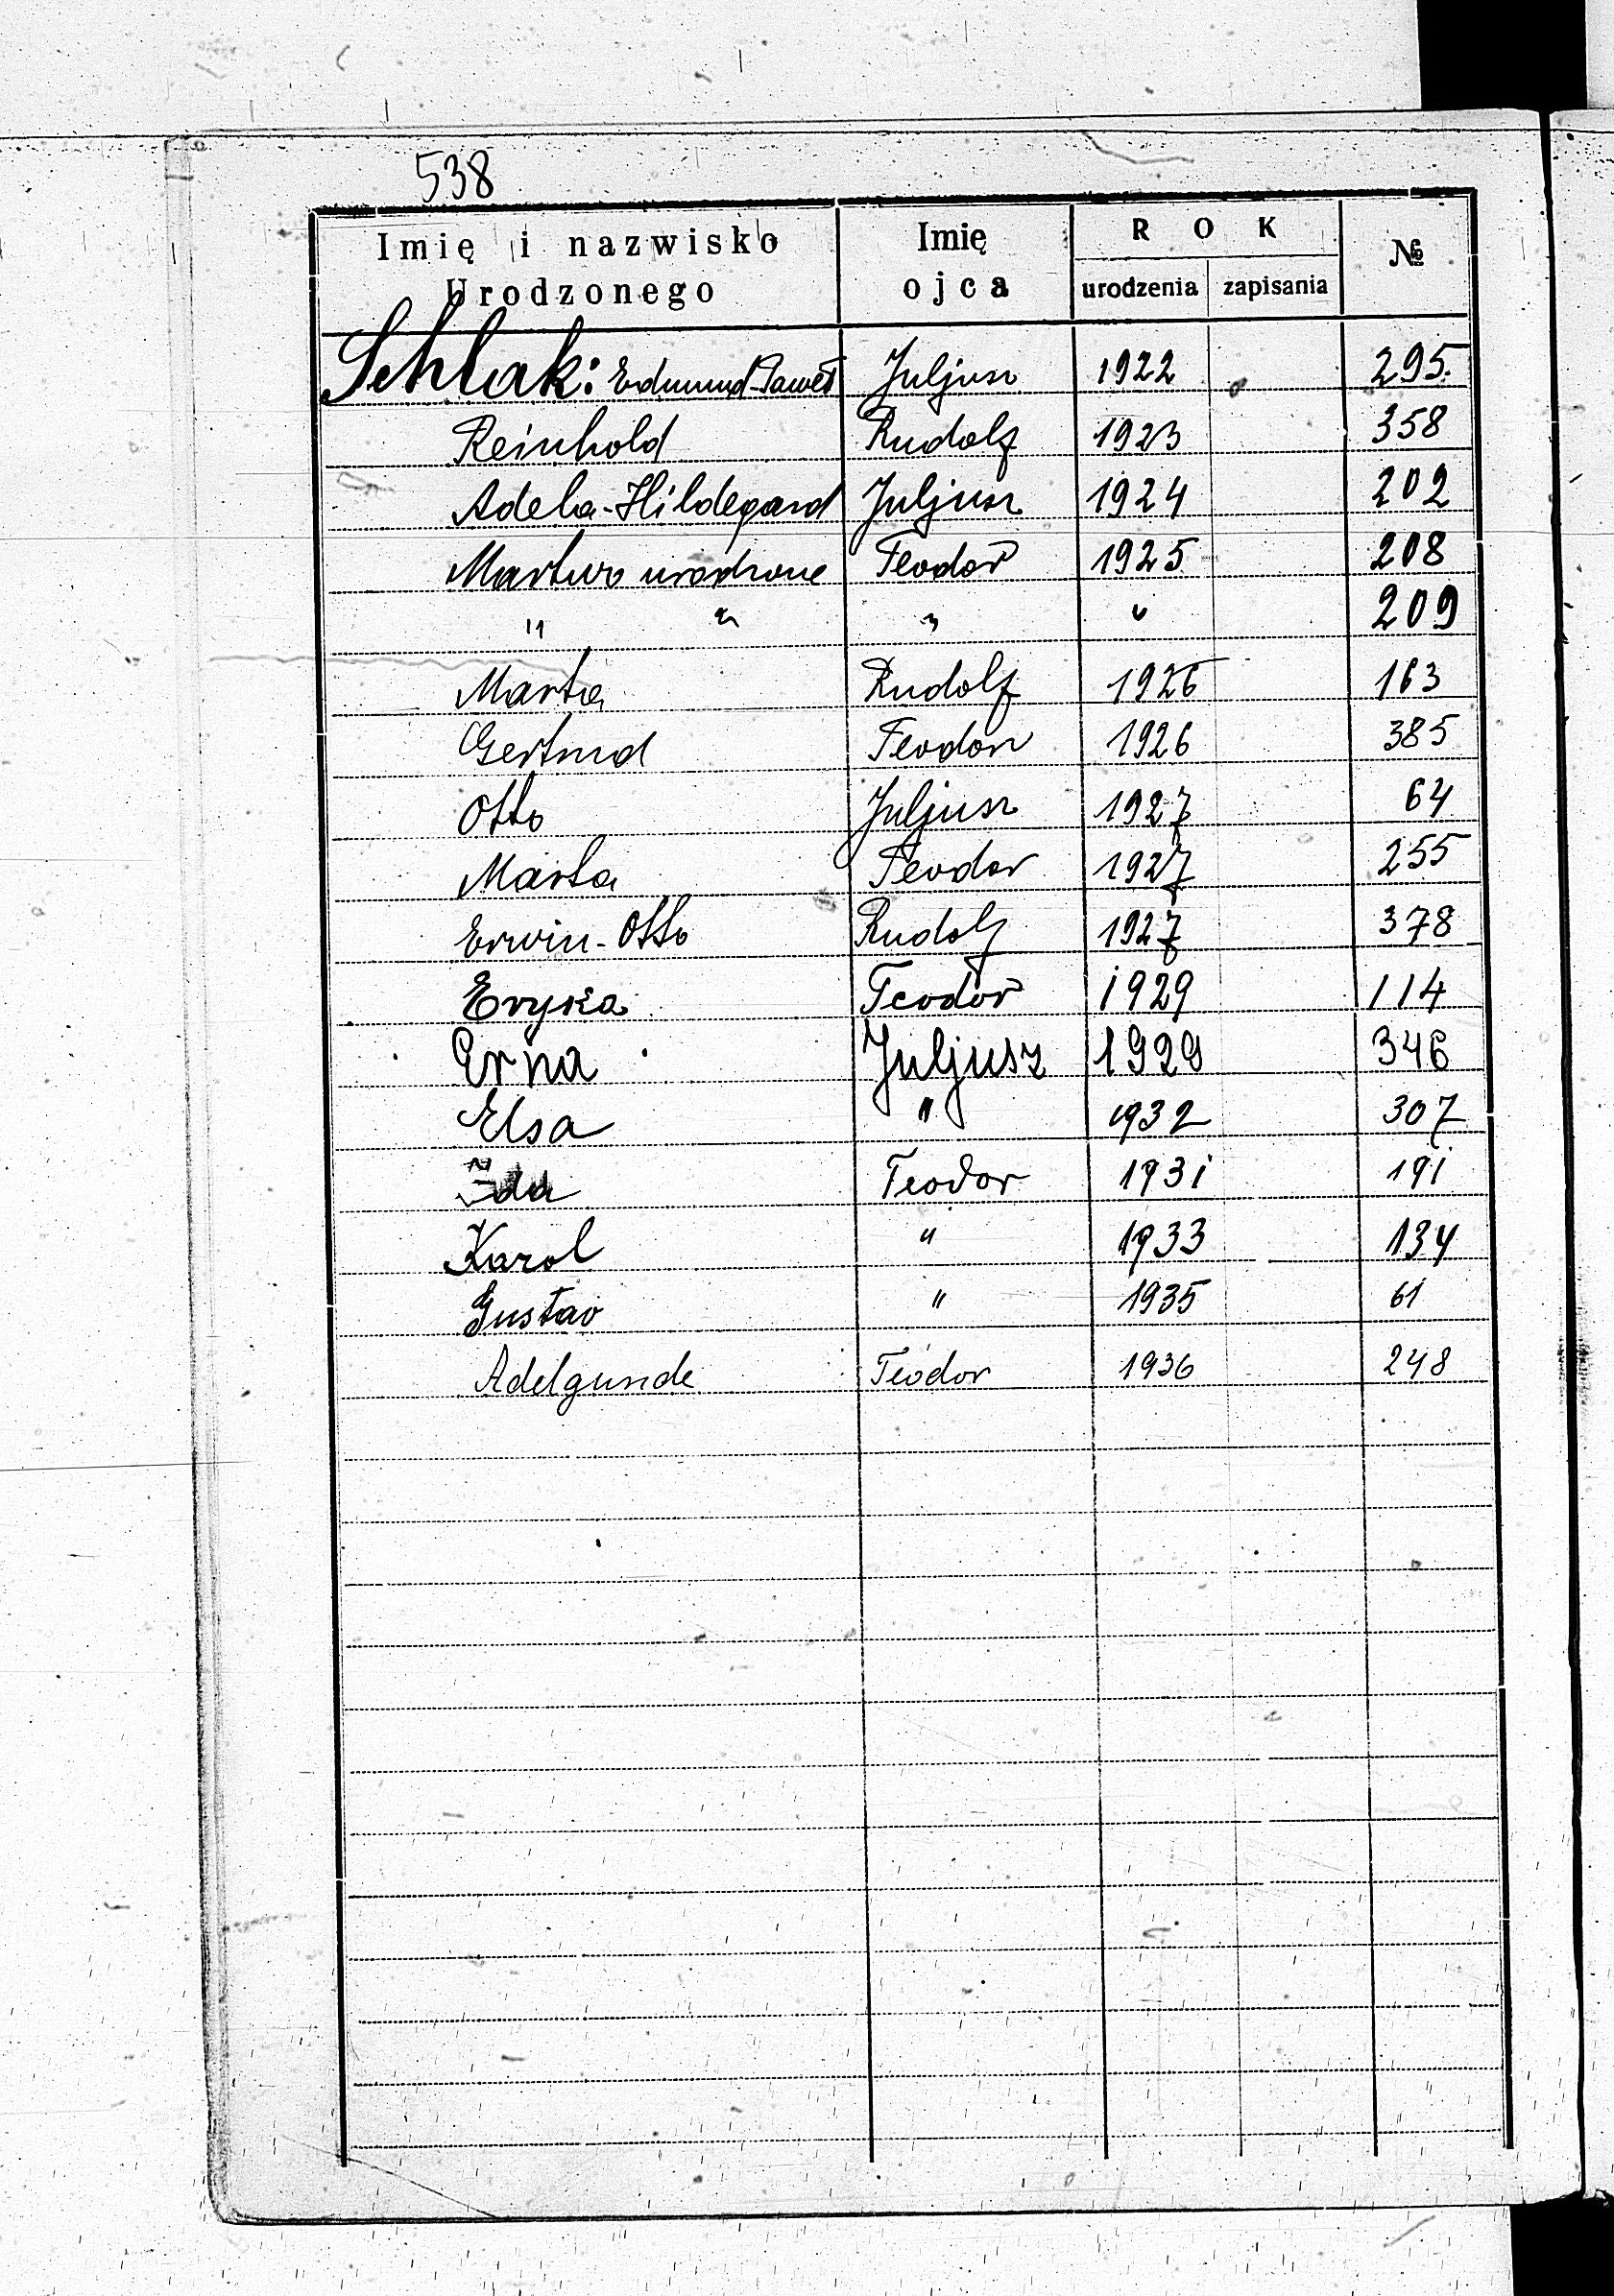 538
Imię i nazwisko Urodzonego | Imię ojca | ROK urodzenia | zapisania | №
Schlak: Edmund-Paweł Juljusz 1922 295.
Reinhold Rudolf 1923 358
Adela-Hildegard Juljusz 1924 202
Martwo urodzone Teodor 1925 208
" " " " 209
Marta Rudolf 1926 163
Gertrud Teodor 1926 385
Otto Juljusz 1927 64
Marta Teodor 1927 255
Erwin-Otto Rudolf 1927 378
Eryka Teodor 1929 114
Erna Juljusz 1929 346
Elsa " 1932 307
Ida Teodor 1931 191
Karol " 1933 134
Gustav " 1935 61
Adelgunde Teodor 1936 248